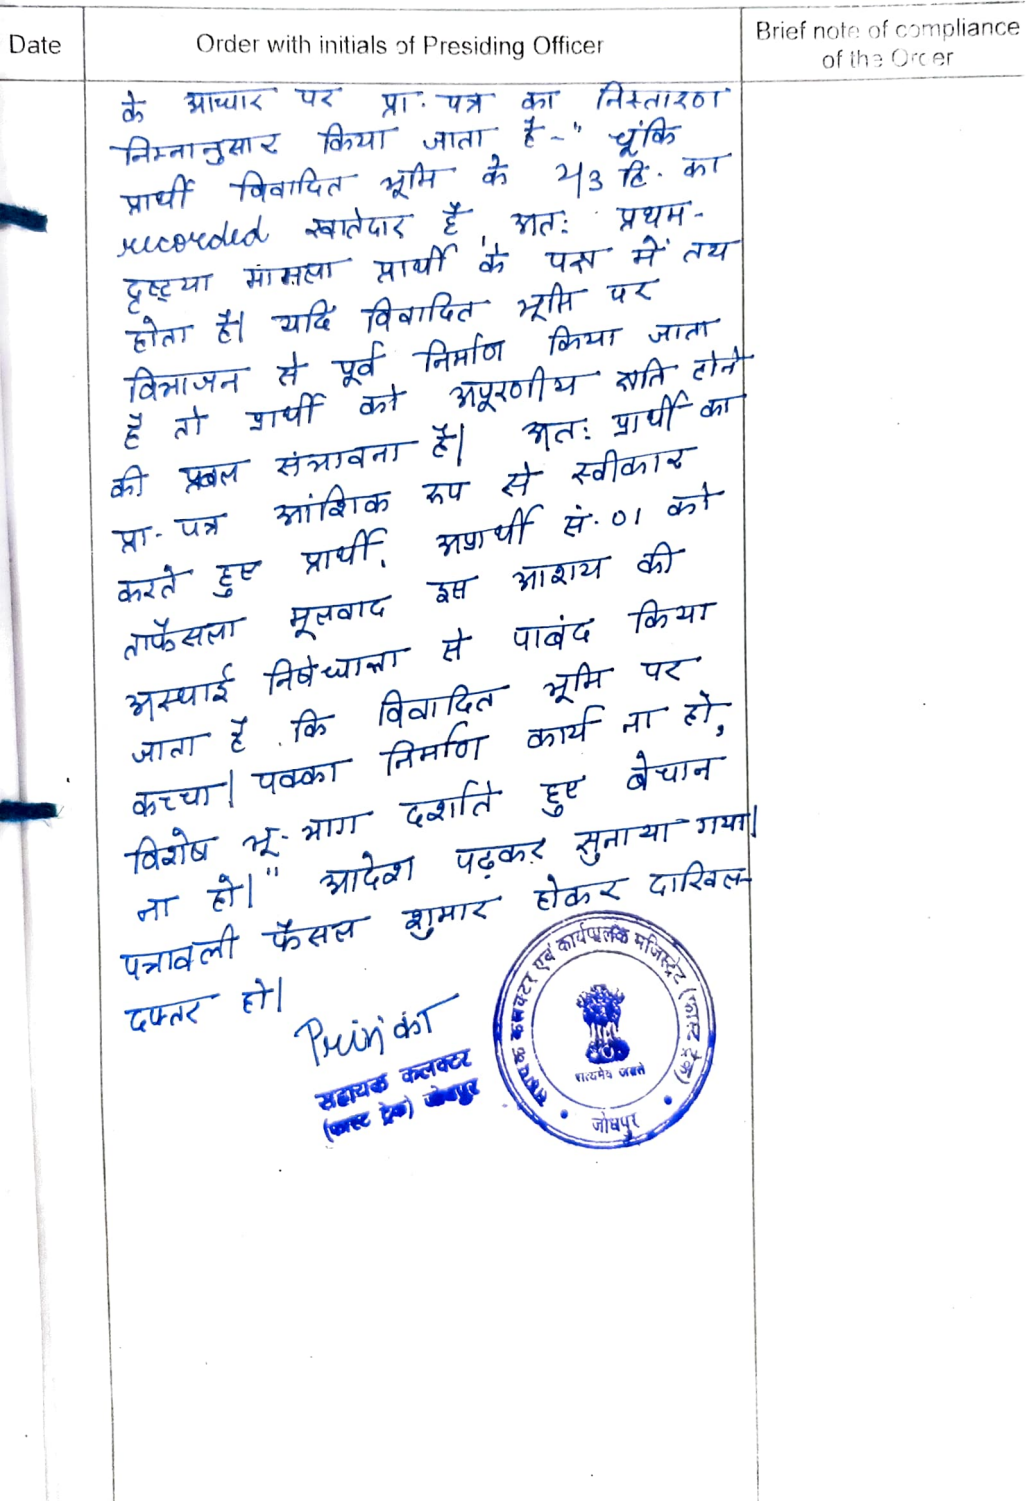 Date
Order with initials of Presiding Officer
Brief note of compliance
of the Order
के आधार पर प्रा. पत्र का निस्तारण
निम्नानुसार किया जाता है-" चूंकि
प्रार्थी विवादित भूमि के हि. का
recorded खातेदार है, अतः प्रथम-
दृष्ट्या मामला प्रार्थी के पक्ष में तय
होता है। यदि विवादित भूमि पर
विभाजन से पूर्व निर्माण किया जाता
है तो प्रार्थी को अपूरणीय क्षति होने
की प्रबल संभावना है। अतः प्रार्थी का
प्रा. पत्र आंशिक रुप से स्वीकार
करते हुए प्रार्थी, अप्रार्थी सं. 01 को
ताफैसला मूलवाद इस आशय की
अस्थाई निषेधाज्ञा से पाबंद किया
जाता है कि विवादित भूमि पर
कच्चा/पक्का निर्माण कार्य ना हो,
विशेष भू-भाग दर्शाते हुए बेचान
ना हो।" आदेश पढ़कर सुनाया गया।
पत्रावली फैसल शुमार होकर दाखिल-
दफ्तर हो।
सहायक कलक्टर
(फास्ट ट्रेक) जोधपुर
सहायक कलक्टर एवं कार्यपालक मजिस्ट्रेट (फास्ट ट्रेक)
सत्यमेव जयते
जोधपुर